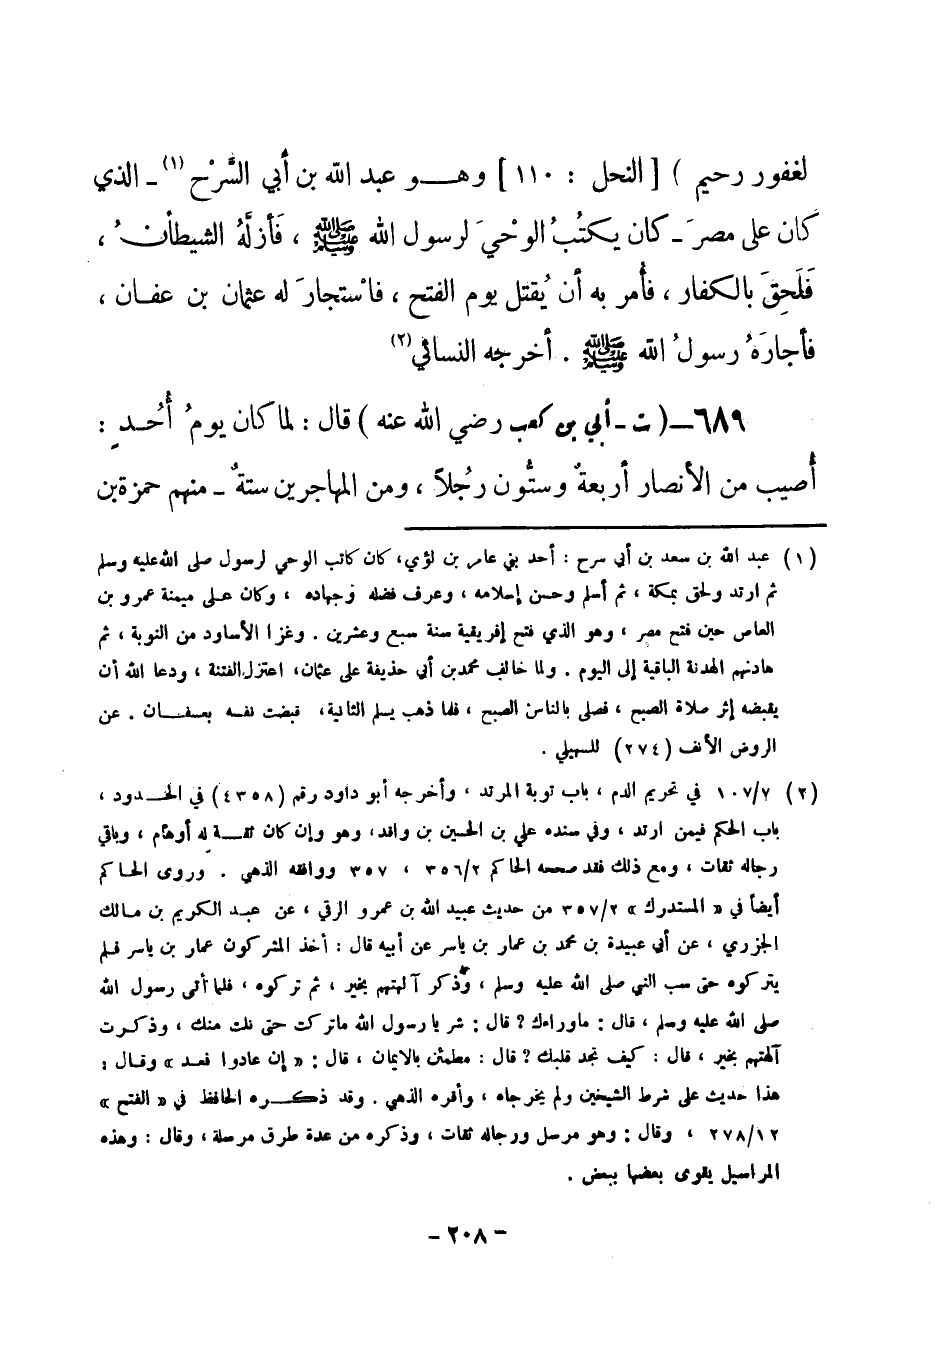 لغفور رحيم ) [ النحل : ١١٠ ] وهـــو عبد الله بن أبي السَّرْح (١) ـ الذي
كان على مصرَ ـ كان يكتُبُ الوحْيَ لرسول الله ﷺ ، فَأزلَّهُ الشيطانُ ،
فَلَحِقَ بالكفار ، فأُمر به أن يُقتل يوم الفتح ، فاسْتجارَ له عثمان بن عفـان ،
فأجارَهُ رسولُ الله ﷺ . أخرجه النسائي (٢)
٦٨٩ ـ ( ت ـ أبي بن كعب رضي الله عنه ) قال : لما كان يومُ أُحـدٍ :
أُصيب من الأنصار أربعةٌ وستُّون رجُلاً ، ومن المهاجرين ستةٌ ـ منهم حمزة بن
(١) عبد الله بن سعد بن أبي سرح : أحد بني عامر بن لؤي، كان كاتب الوحي لرسول صلى الله عليه وسلم
ثم ارتد ولحق بمكة ، ثم أسلم وحسن إسلامه ، وعرف فضله وجهاده ، وكان عـلى ميمنة عمرو بن
العاص حين فتح مصر ، وهو الذي فتح إفريقية سنة سبع وعشرين . وغزا الأساود من النوبة ، ثم
هادنهم الهدنة الباقية إلى اليوم . ولما خالف محمد بن أبي حذيفة على عثمان، اعتزل الفتنة ، ودعا الله أن
يقبضه إثر صلاة الصبح ، فصلى بالناس الصبح ، فلما ذهب يسلم الثانية، قبضت نفسه بعسفـــان . عن
الروض الأنف (٢٧٤) للسهيلي .
(٢) ١٠٧/٧ في تحريم الدم ، باب توبة المرتد ، وأخرجه أبو داود رقم (٤٣٥٨) في الحـــدود ،
باب الحكم فيمن ارتد ، وفي سنده علي بن الحسين بن واقد، وهو وإن كان ثقـــة له أوهام ، وباقي
رجاله ثقات ، ومع ذلك فقد صححه الحاكم ٣٥٦/٢ ، ٣٥٧ ووافقه الذهبي . وروى الحـاكم
أيضاً في « المستدرك » ٣٥٧/٢ من حديث عبيد الله بن عمرو الرقي ، عن عبـد الكريم بن مـالك
الجزري ، عن أبي عبيدة بن محمد بن عمار بن ياسر عن أبيه قال : أخذ المشركون عمار بن ياسر فـلم
يتركوه حتى سب النبي صلى الله عليه وسلم ، وذكر آلهتهم بخير ، ثم تركوه ، فلما أتى رسول الله
صلى الله عليه وسلم ، قال : ماوراءك ؟ قال : شر يا رسول الله ماتركت حتى نلت منك ، وذكـرت
آلهتهم بخير ، قال : كيف تجد قلبك ؟ قال : مطمئن بالايمان ، قال : « إن عادوا فعـد » وقـال :
هذا حديث على شرط الشيخين ولم يخرجاه ، وأقره الذهبي . وقد ذكـــره الحافظ في « الفتح »
٢٧٨/١٢ ، وقال : وهو مرسل ورجاله ثقات ، وذكره من عدة طرق مرسلة ، وقال : وهذه
المراسيل يقوى بعضها ببعض .
- ٢٠٨ -